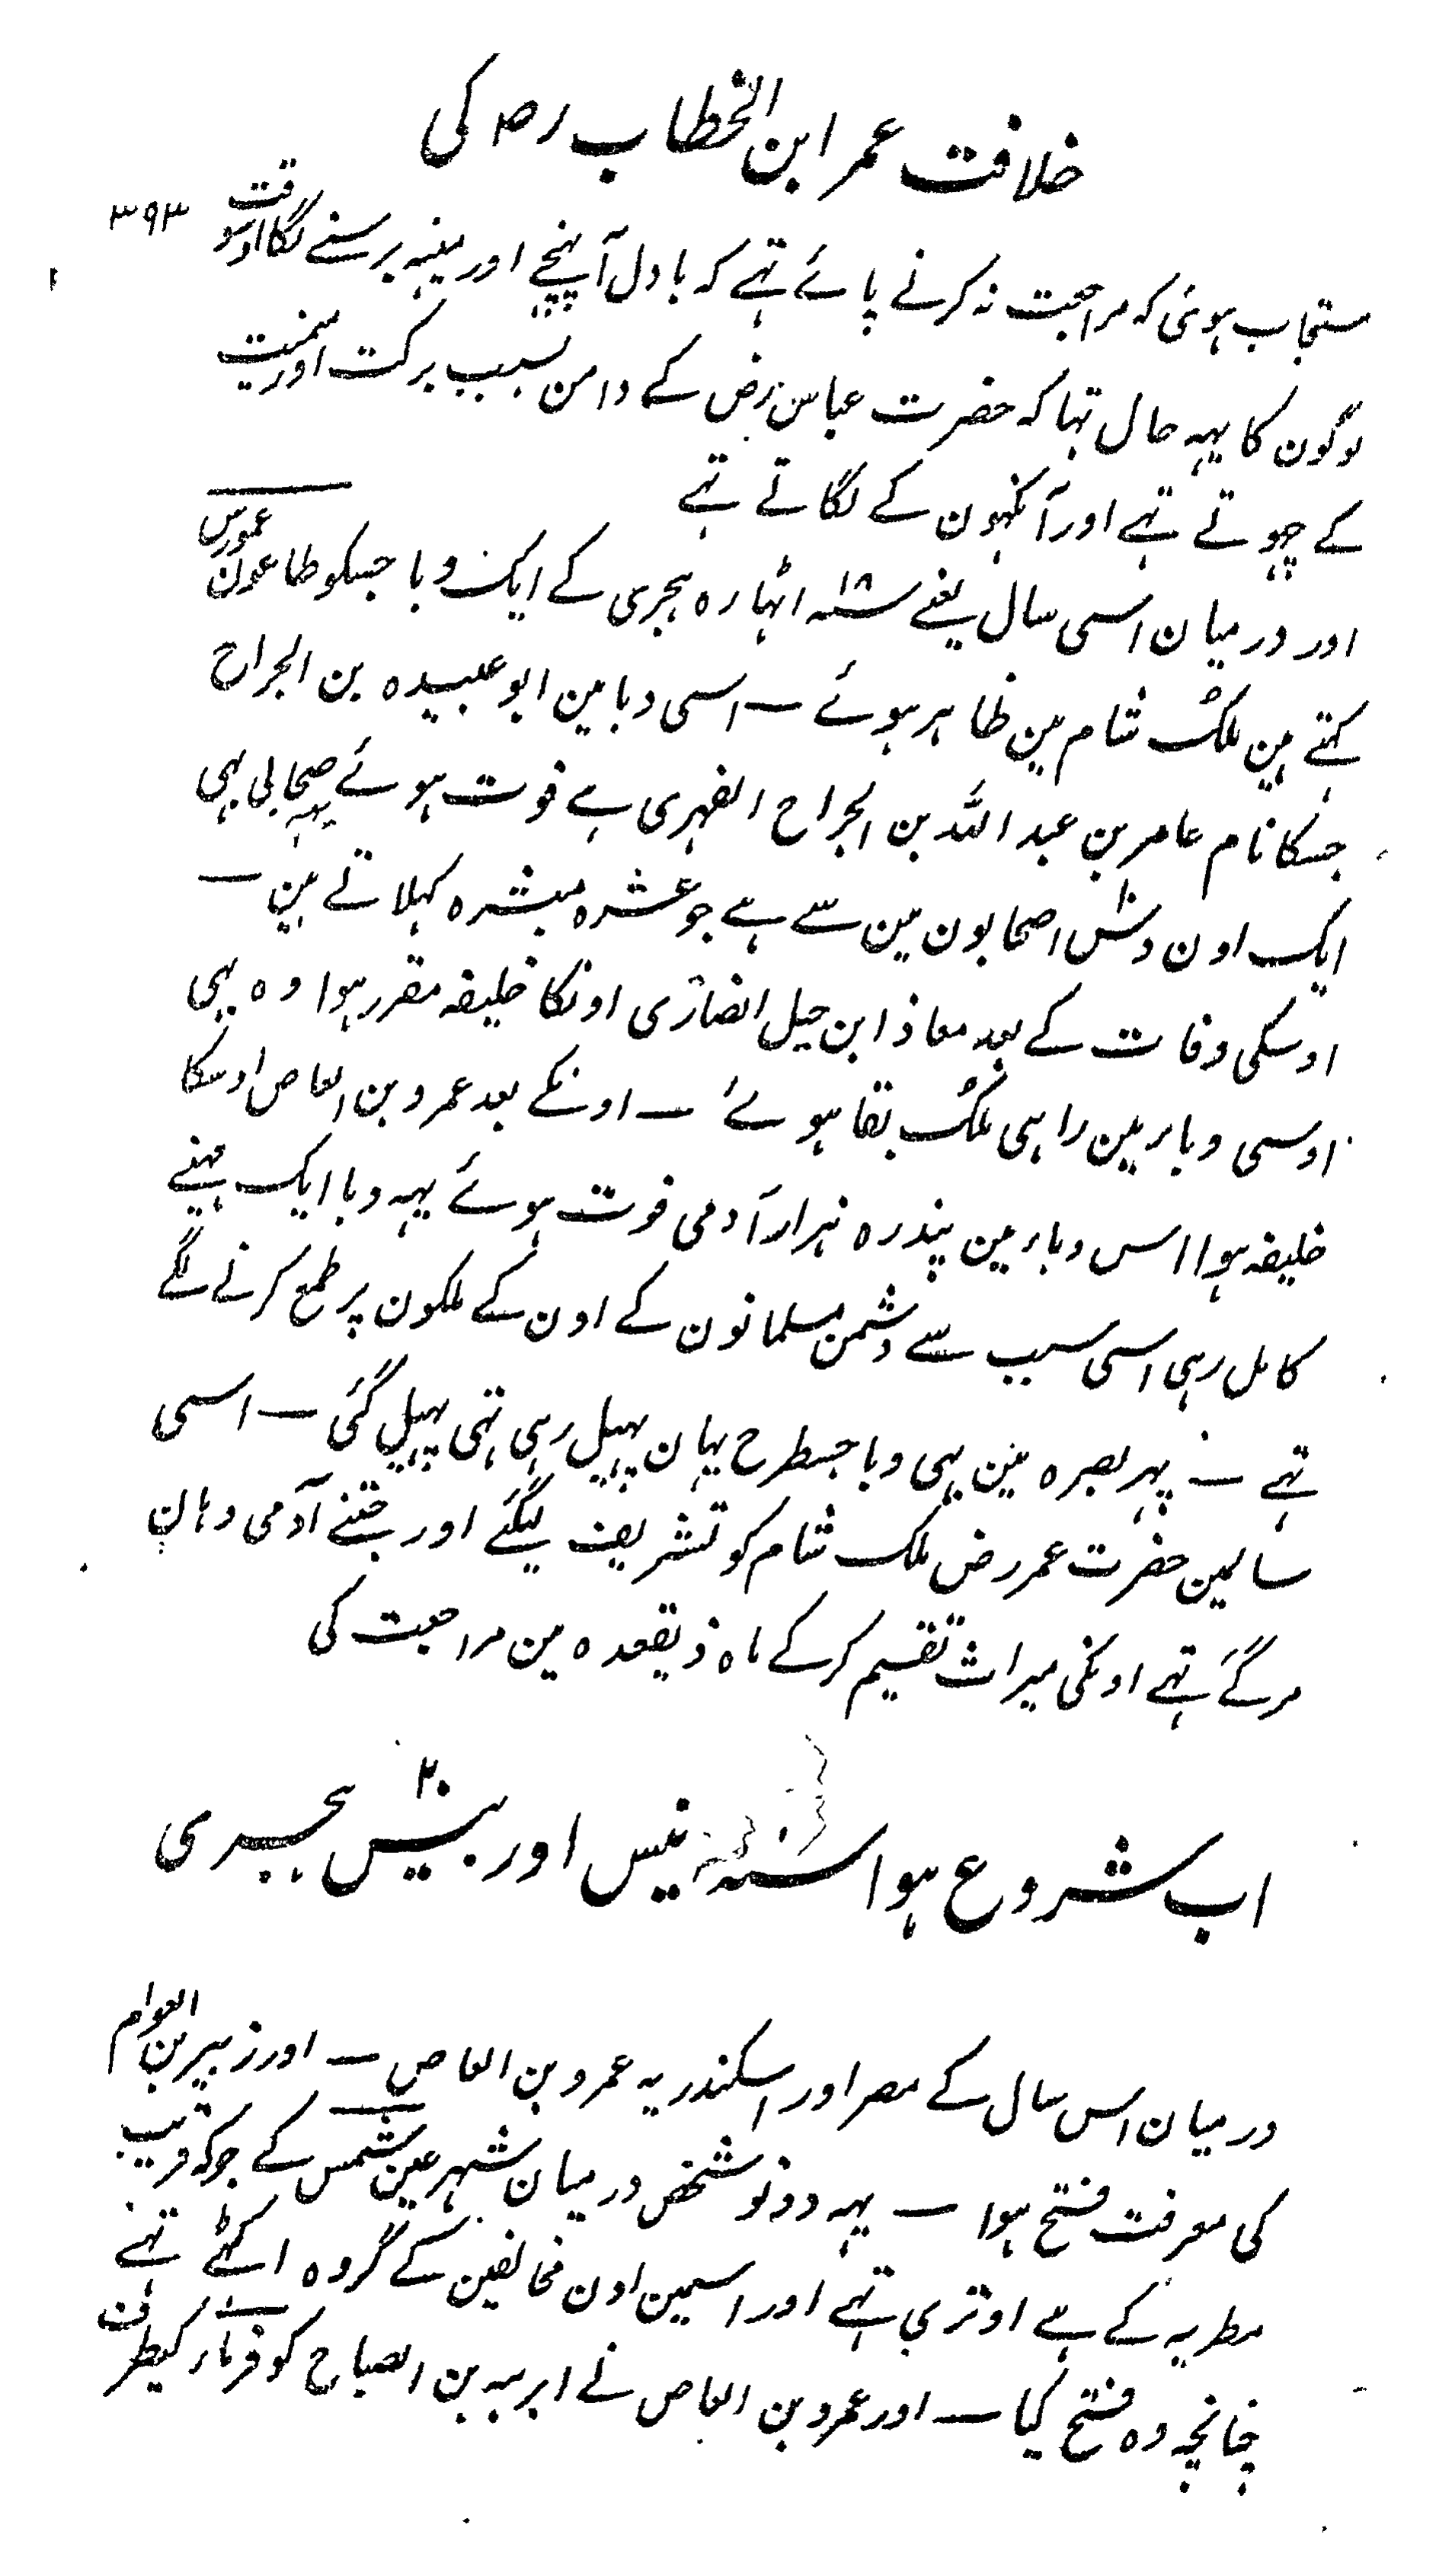 خلافت عمر ابن الخطاب رض کی
۳۹۳
ستجاب ہوئی کہ مراجعت نہ کرنے پائے تہے کہ بادل آپہنچے اور مینہہ برسنے لگا اوسوقت
لوگون کا یہہ حال تہا کہ حضرت عباس رض کے دامن بسبب برکت اور یمنت
کے چہوتے تہے اور آنکہون کے لگاتے تہے
اور درمیان اسی سال یعنے سنہ ۱۸ اٹہارہ ہجری کے ایک وبا جسکو طاعون عمواس
کہتے ہین ملک شام مین ظاہر ہوئے — اسی وبا مین ابو عبیدہ بن الجراح
جسکا نام عامر بن عبد اللہ بن الجراح الفہری ہے فوت ہوئے یہہ صحابی بہی
ایک اون دس ۱۰ اصحابون مین سے ہے جو عشرہ مبشرہ کہلاتے ہین —
اوسکی وفات کے بعد معاذ ابن جبل انصاری اونکا خلیفہ مقرر ہوا وہ بہی
اوسی وبار مین راہی ملک بقا ہوئے — اونکے بعد عمرو بن العاص اوسکا
خلیفہ ہوا اس وباء مین پندرہ ہزار آدمی فوت ہوئے یہہ وبا ایک مہینے
کامل رہی اسی سبب سے دشمن مسلمانون کے اون کے ملکون پر طمع کرنے لگے
تہے — پہر بصرہ مین بہی وبا جسطرح یہان پہیل رہی تہی پہیل گئی — اسی
سالمین حضرت عمر رض ملک شام کو تشریف لیگئے اور جتنے آدمی وہان
مرگئے تہے اونکی میراث تقسیم کرکے ماہ ذیقعدہ مین مراجعت کی
اب شروع ہوا سنہ نیس اور بیس ۲۰ ہجری
درمیان اس سال کے مصر اور اسکندریہ عمرو بن العاص — اور زبیر بن العوام
کی معرفت فتح ہوا — یہہ دونو شخص درمیان شہر عین شمس کے جو کہ قریب
مطریہ کے ہے اوتری تہے اور اسمین اون مخالفین کے گروہ اکٹہے تہے
چنانچہ وہ فتح کیا — اور عمرو بن العاص نے ابرہہ بن الصباح کو فرماء کیطرف